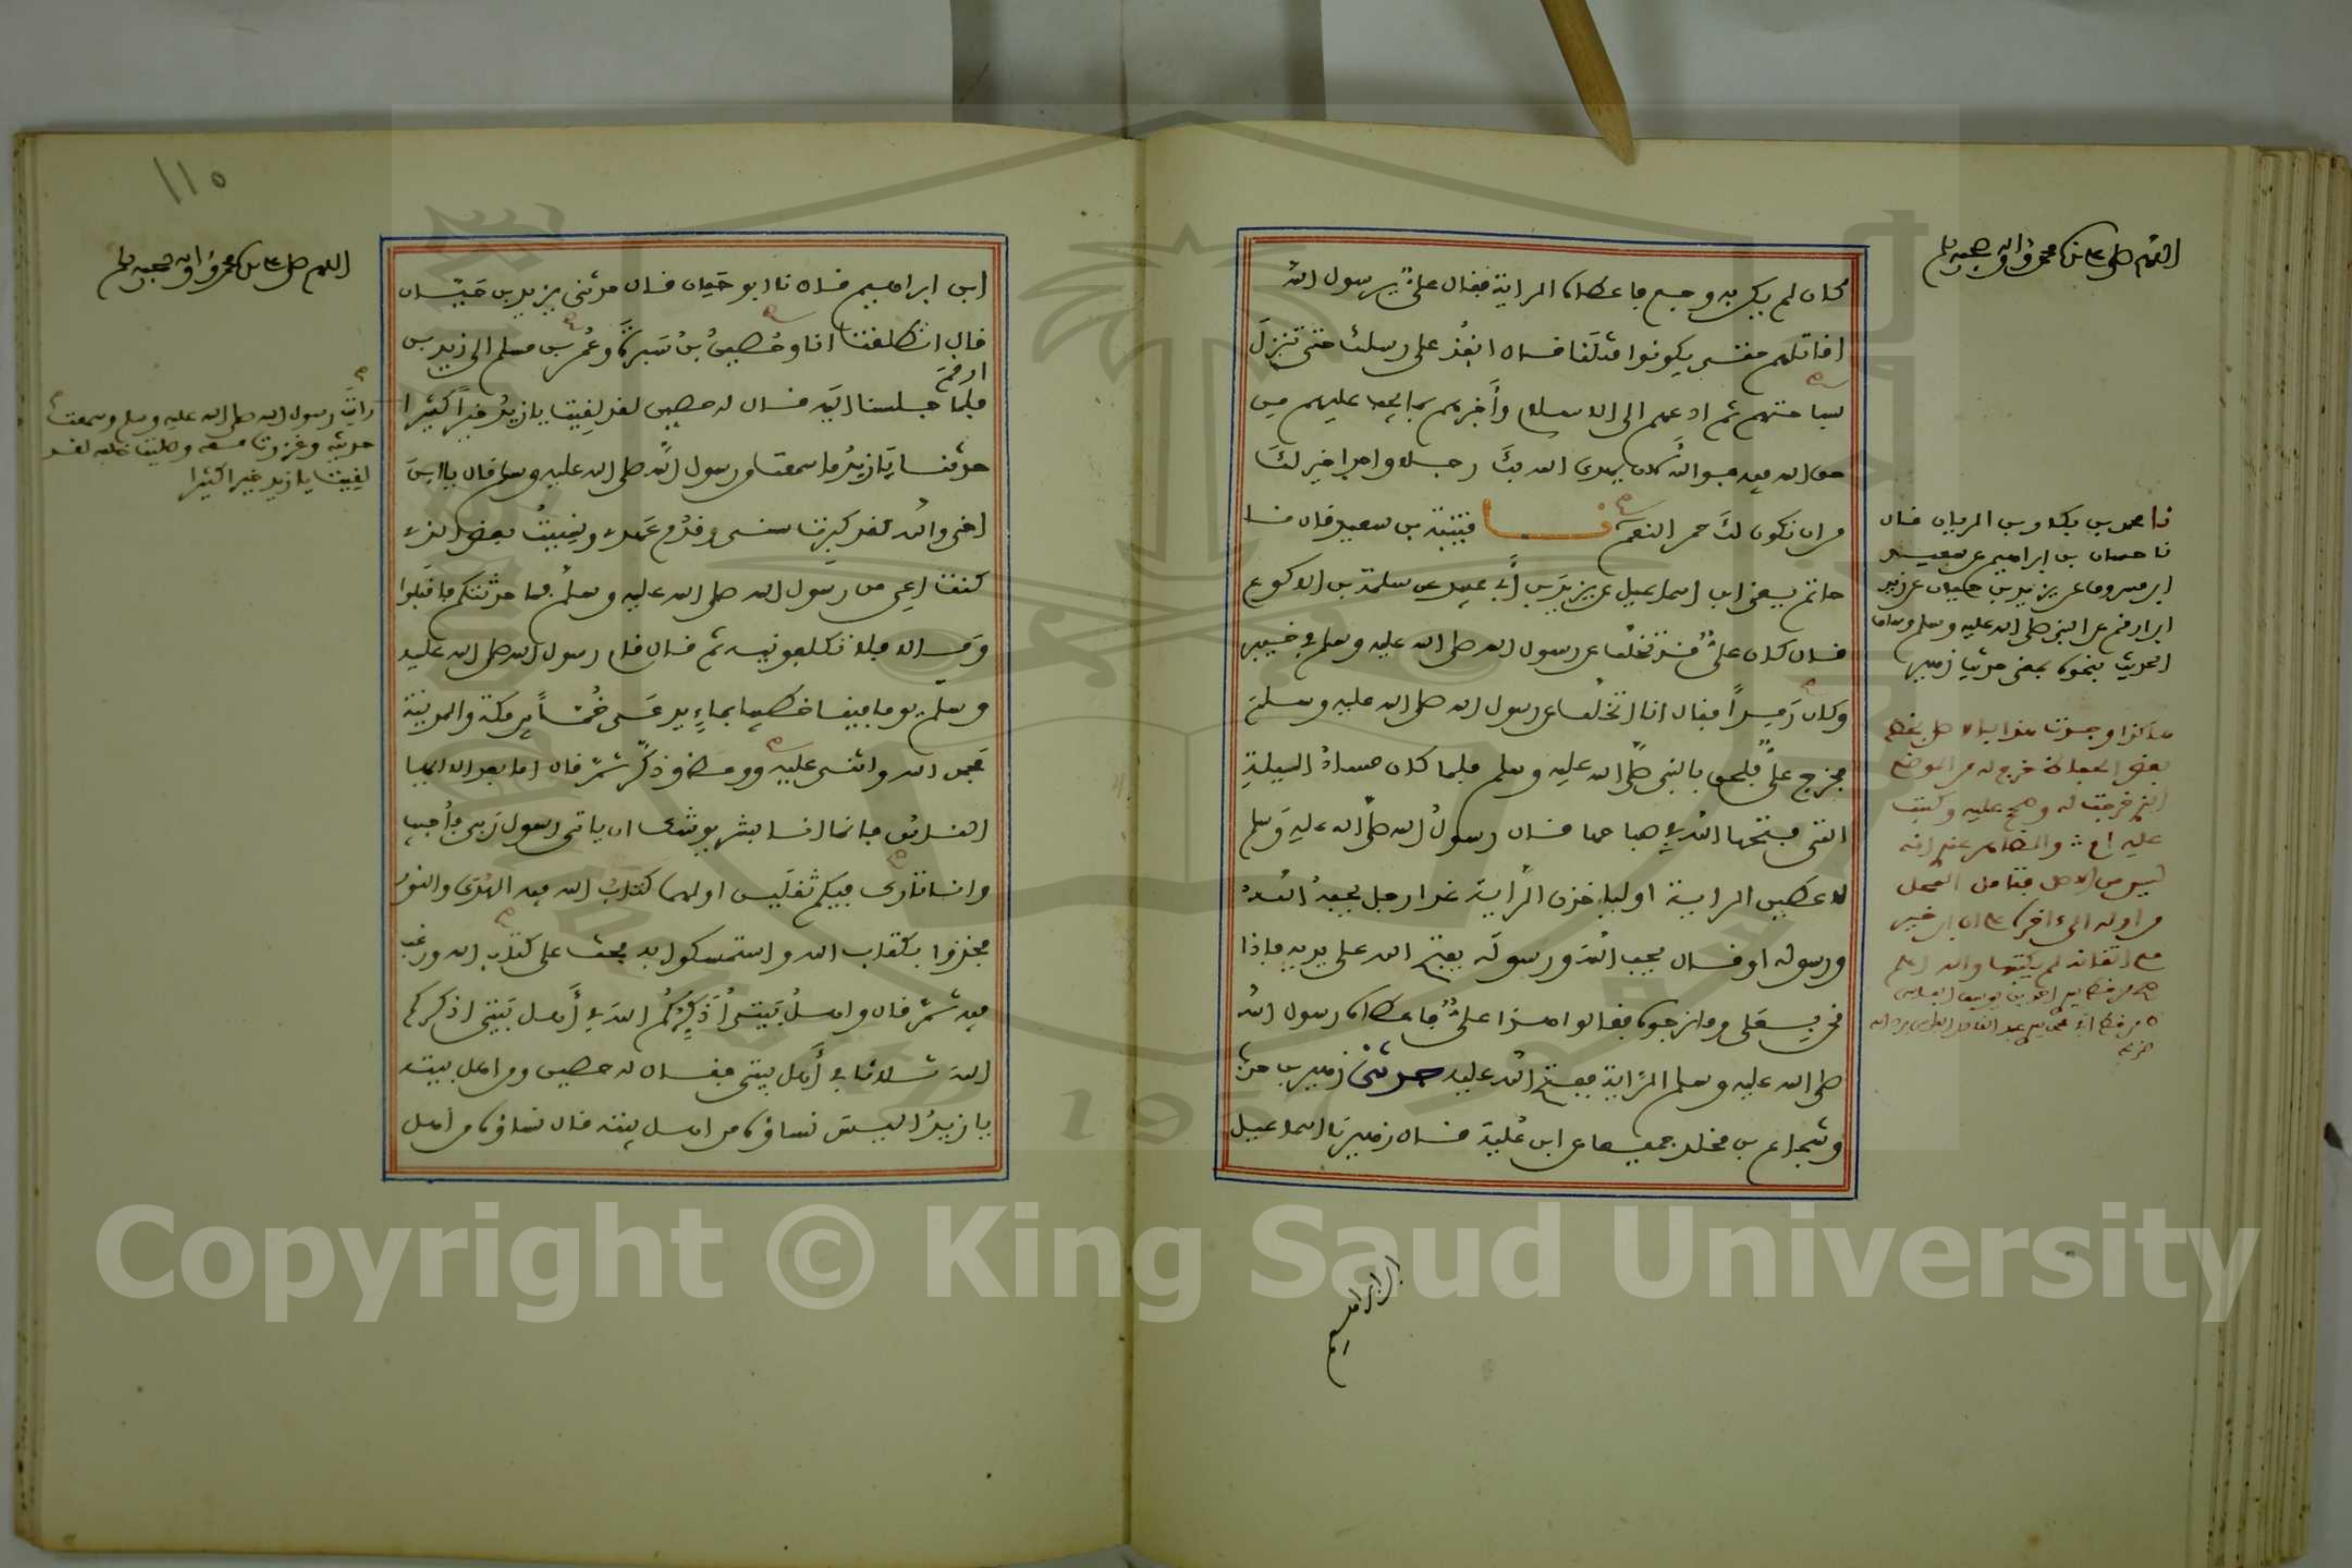 اللهم صل على سيدنا محمد وآله وصحبه وسلم
كان لم يكن به وجع فاعطاه الراية فقال علي يا رسول الله
افاتلهم حتى يكونوا مثلنا فقال انفذ على رسلك حتى تنزل
بساحتهم ثم ادعهم الى الاسلام وأخبرهم بما يجب عليهم من
حق الله فيه فوالله لان يهدي الله بك رجلا واحدا خير لك
من ان تكون لك حمر النعم نا قتيبة بن سعيد قال نا
حاتم يعني ابن اسماعيل عن يزيد بن أبي عبيد عن سلمة بن الاكوع
قال كان علي قد تخلف عن رسول الله صلى الله عليه وسلم في خيبر
وكان رمدا فقال انا اتخلف عن رسول الله صلى الله عليه وسلم
فخرج علي فلحق بالنبي صلى الله عليه وسلم فلما كان مساء الليلة
التي فتحها الله في صباحها قال رسول الله صلى الله عليه وسلم
لاعطين الراية او لياخذن الراية غدا رجل يحبه الله
ورسوله او قال يحب الله ورسوله يفتح الله على يديه فاذا
نحن بعلي وما نرجوه فقالوا هذا علي فاعطاه رسول الله
صلى الله عليه وسلم الراية ففتح الله عليه حدثني زهير بن حرب
وشجاع بن مخلد جميعا عن ابن علية قال زهير نا اسماعيل
نا محمد بن بكار بن الريان قال
نا حسان بن ابراهيم عن سعيد
ابن مسروق عن يزيد بن حيان عن زيد
ابن ارقم عن النبي صلى الله عليه وسلم وساق
الحديث بنحوه بمعنى حديث زهير
هكذا وجدت هذا بالاصل بخط
بعض الحفاظ خرج له من الموضع
الذي خرجت له وصح عليه وكتب
عليه والظاهر عندي انه
ليس من الاصل فتامل الفصل
من اوله الى ءاخره
والله اعلم
ابن ابراهيم
١١٥
اللهم صل على سيدنا محمد وآله وصحبه وسلم
ابن ابراهيم قال نا ابو حيان قال حدثني يزيد بن حيان
قال انطلقت انا وحصين بن سبرة وعمر بن مسلم الى زيد بن
ارقم
فلما جلسنا اليه قال له حصين لقد لقيت يا زيد خيرا كثيرا
حدثنا يا زيد ما سمعت من رسول الله صلى الله عليه وسلم قال يا ابن
اخي والله لقد كبرت سني وقدم عهدي ونسيت بعض الذي
كنت اعي من رسول الله صلى الله عليه وسلم فما حدثتكم فاقبلوا
وما لا فلا تكلفونيه ثم قال قام رسول الله صلى الله عليه
وسلم يوما فينا خطيبا بماء يدعى خما بين مكة والمدينة
فحمد الله واثنى عليه ووعظ وذكر ثم قال اما بعد الا ايها
الناس فانما انا بشر يوشك ان ياتي رسول ربي فأجيب
وانا تارك فيكم ثقلين اولهما كتاب الله فيه الهدى والنور
فخذوا بكتاب الله واستمسكوا به فحث على كتاب الله ورغب
فيه ثم قال واهل بيتي أذكركم الله في أهل بيتي اذكركم
الله ثلاثا في أهل بيتي فقال له حصين ومن اهل بيته
يا زيد اليس نساؤه من اهل بيته قال نساؤه من اهل
رايت رسول الله صلى الله عليه وسلم وسمعت
حديثه وغزوت معه وصليت خلفه لقد
لقيت يا زيد خيرا كثيرا
Copyright © King Saud University